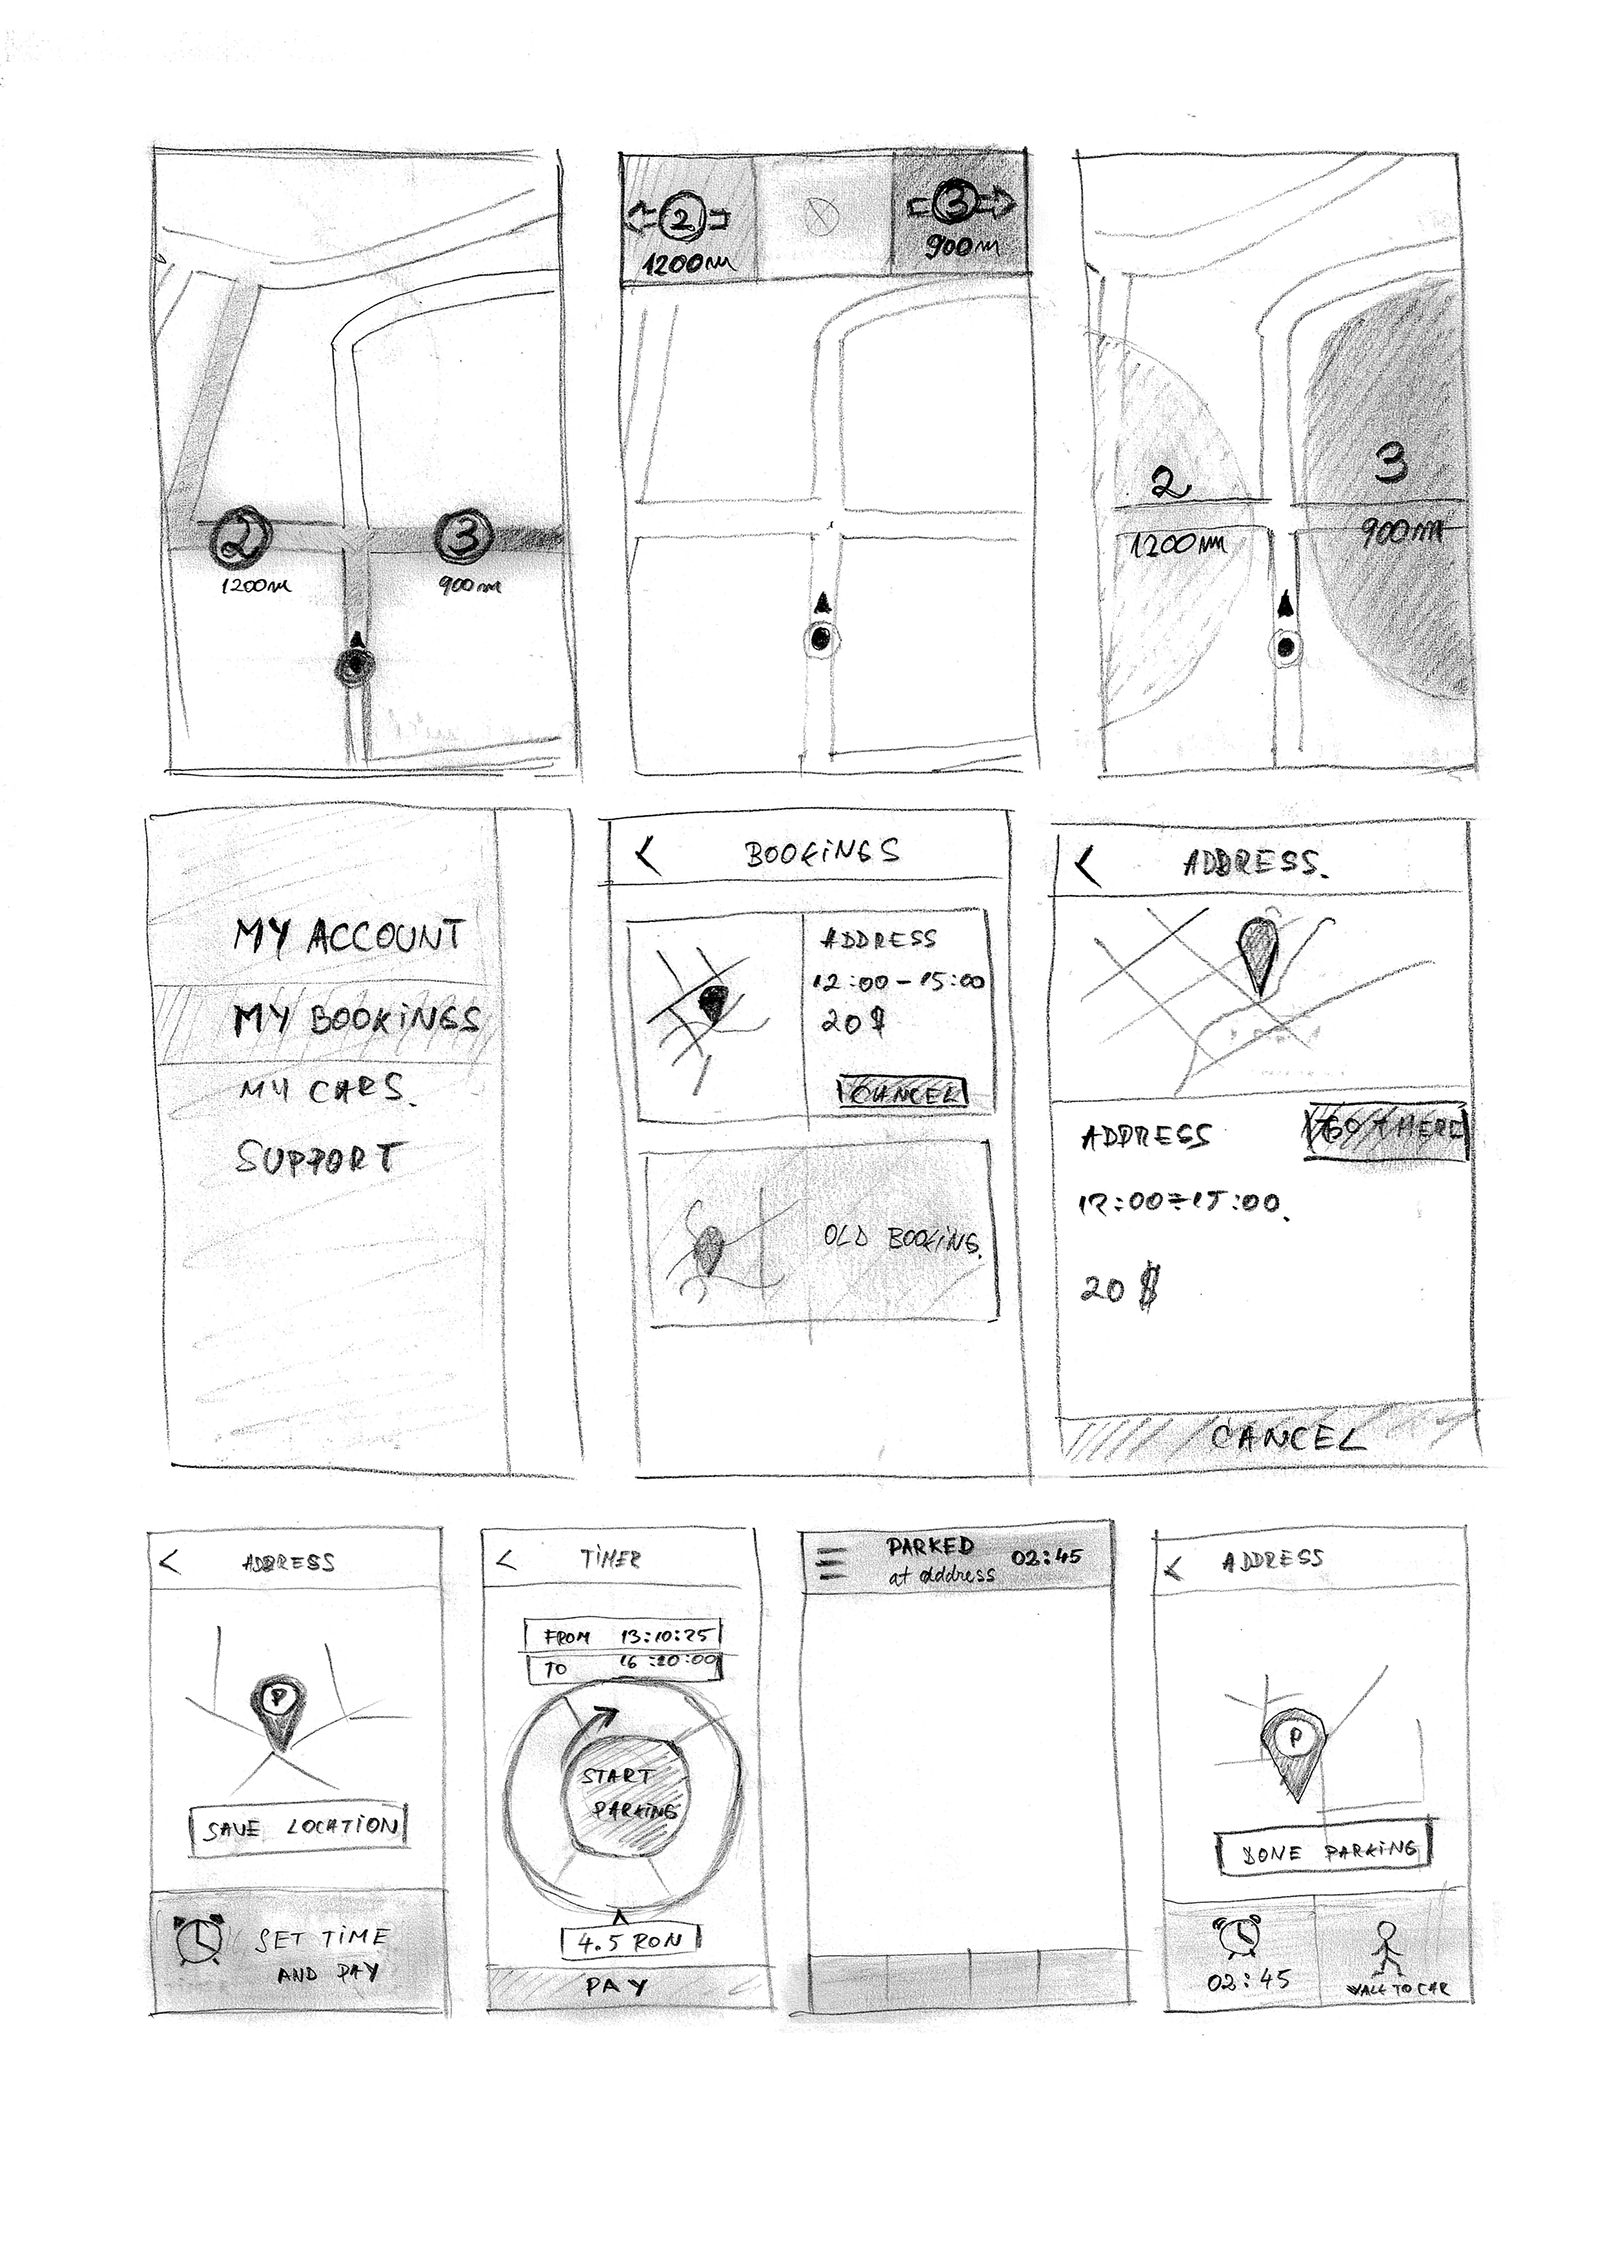 2
1200m
3
900m
2
1200m
3
900m
2
1200m
3
900m
MY ACCOUNT
MY BOOKINGS
MY CARS.
SUPPORT
< BOOKINGS
ADDRESS
12:00-15:00
20$
CANCEL
OLD BOOKING.
< ADDRESS.
ADDRESS
GO THERE
12:00-15:00.
20$
CANCEL
< ADDRESS
P
SAVE LOCATION
SET TIME
AND PAY
< TIMER
FROM 13:10:25
TO 16:20:00
START
PARKING
4.5 RON
PAY
PARKED
at address
02:45
< ADDRESS
P
DONE PARKING
02:45
WALK TO CAR